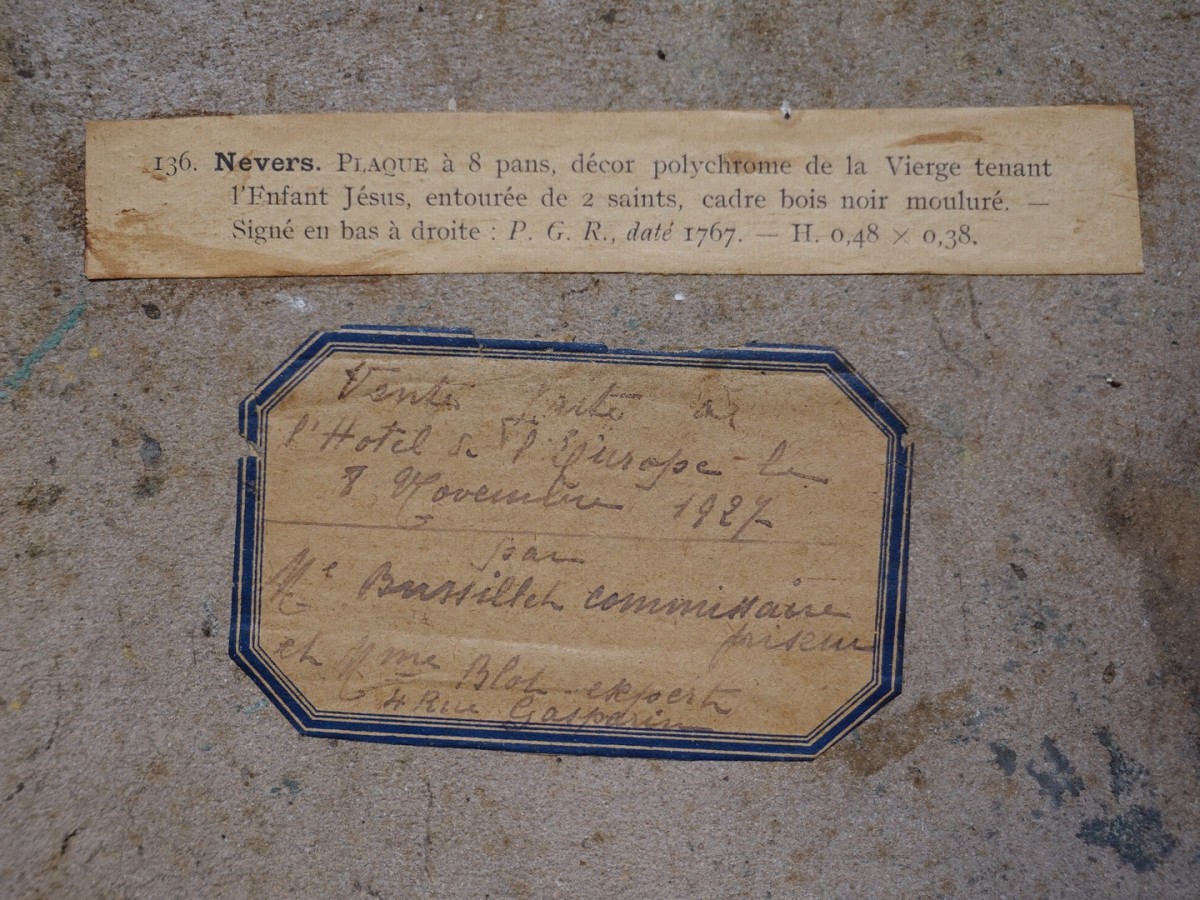 136. Nevers. PLAQUE à 8 pans, décor polychrome de la Vierge tenant
l'Enfant Jésus, entourée de 2 saints, cadre bois noir mouluré. —
Signé en bas à droite : P. G. R., daté 1767. — H. 0,48 × 0,38.
Vente faite à
l'Hotel de l'Europe le
8 Novembre 1927
par
Me Bussillet commissaire
priseur
et Mme Blot expert
4 Rue Gasparin